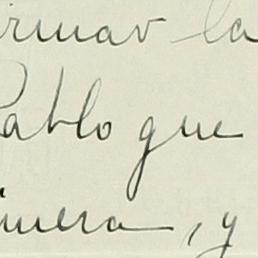 irmar la
Pablo que
imera, y